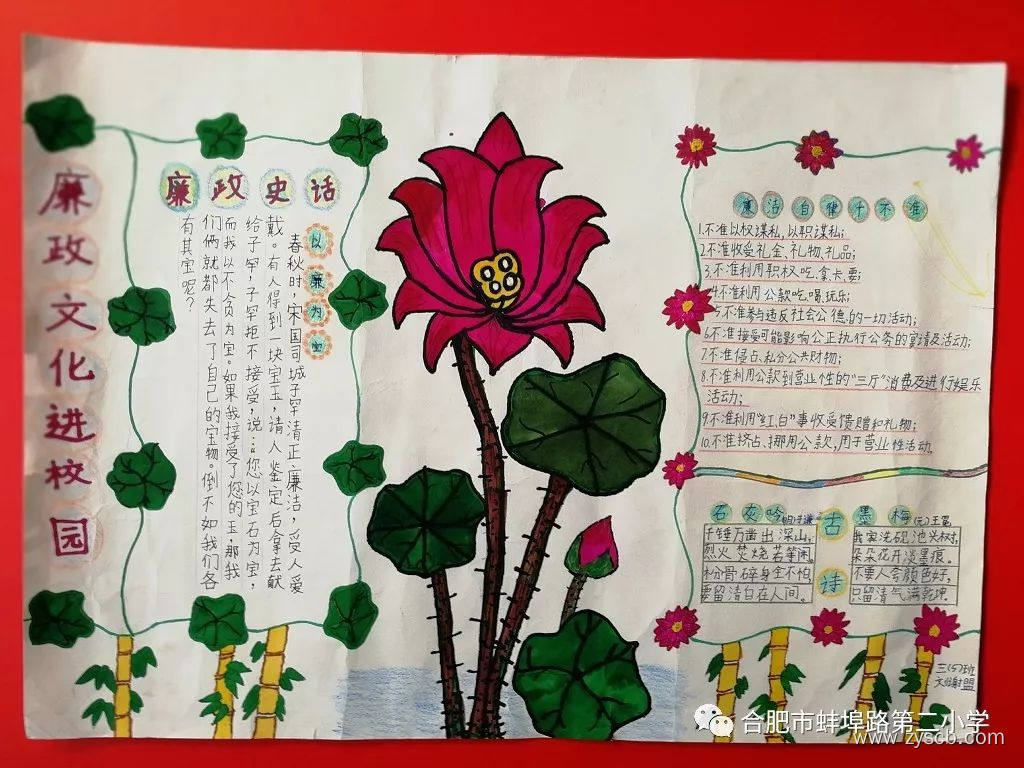 廉政文化进校园
廉政史话
以廉为宝
春秋时,宋国司城子罕清正廉洁,受人爱
戴。有人得到一块宝玉,请人鉴定后拿去献
给子罕,子罕拒不接受,说:“您以宝石为宝,
而我以不贪为宝。如果我接受了您的玉,那我
们俩就都失去了自己的宝物。倒不如我们各
有其宝呢?
廉洁自律十不准
1.不准以权谋私,以职谋私;
2.不准收受礼金、礼物、礼品;
3.不准利用职权吃、拿、卡、要;
4.不准利用公款吃、喝、玩乐;
5.不准参与违反社会公德的一切活动;
6.不准接受可能影响公正执行公务的宴请及活动;
7.不准侵占、私分公共财物;
8.不准利用公款到营业性的“三厅”消费及进行娱乐
活动;
9.不准利用“红、白”事收受馈赠和礼物;
10.不准挤占、挪用公款,用于营业性活动。
古诗
石灰吟 (明)于谦
千锤万凿出深山,
烈火焚烧若等闲。
粉骨碎身全不怕,
要留清白在人间。
墨梅 (元)王冕
我家洗砚池头树,
朵朵花开淡墨痕。
不要人夸颜色好,
只留清气满乾坤。
三(5)班
合肥市蚌埠路第二小学
www.zyscb.com